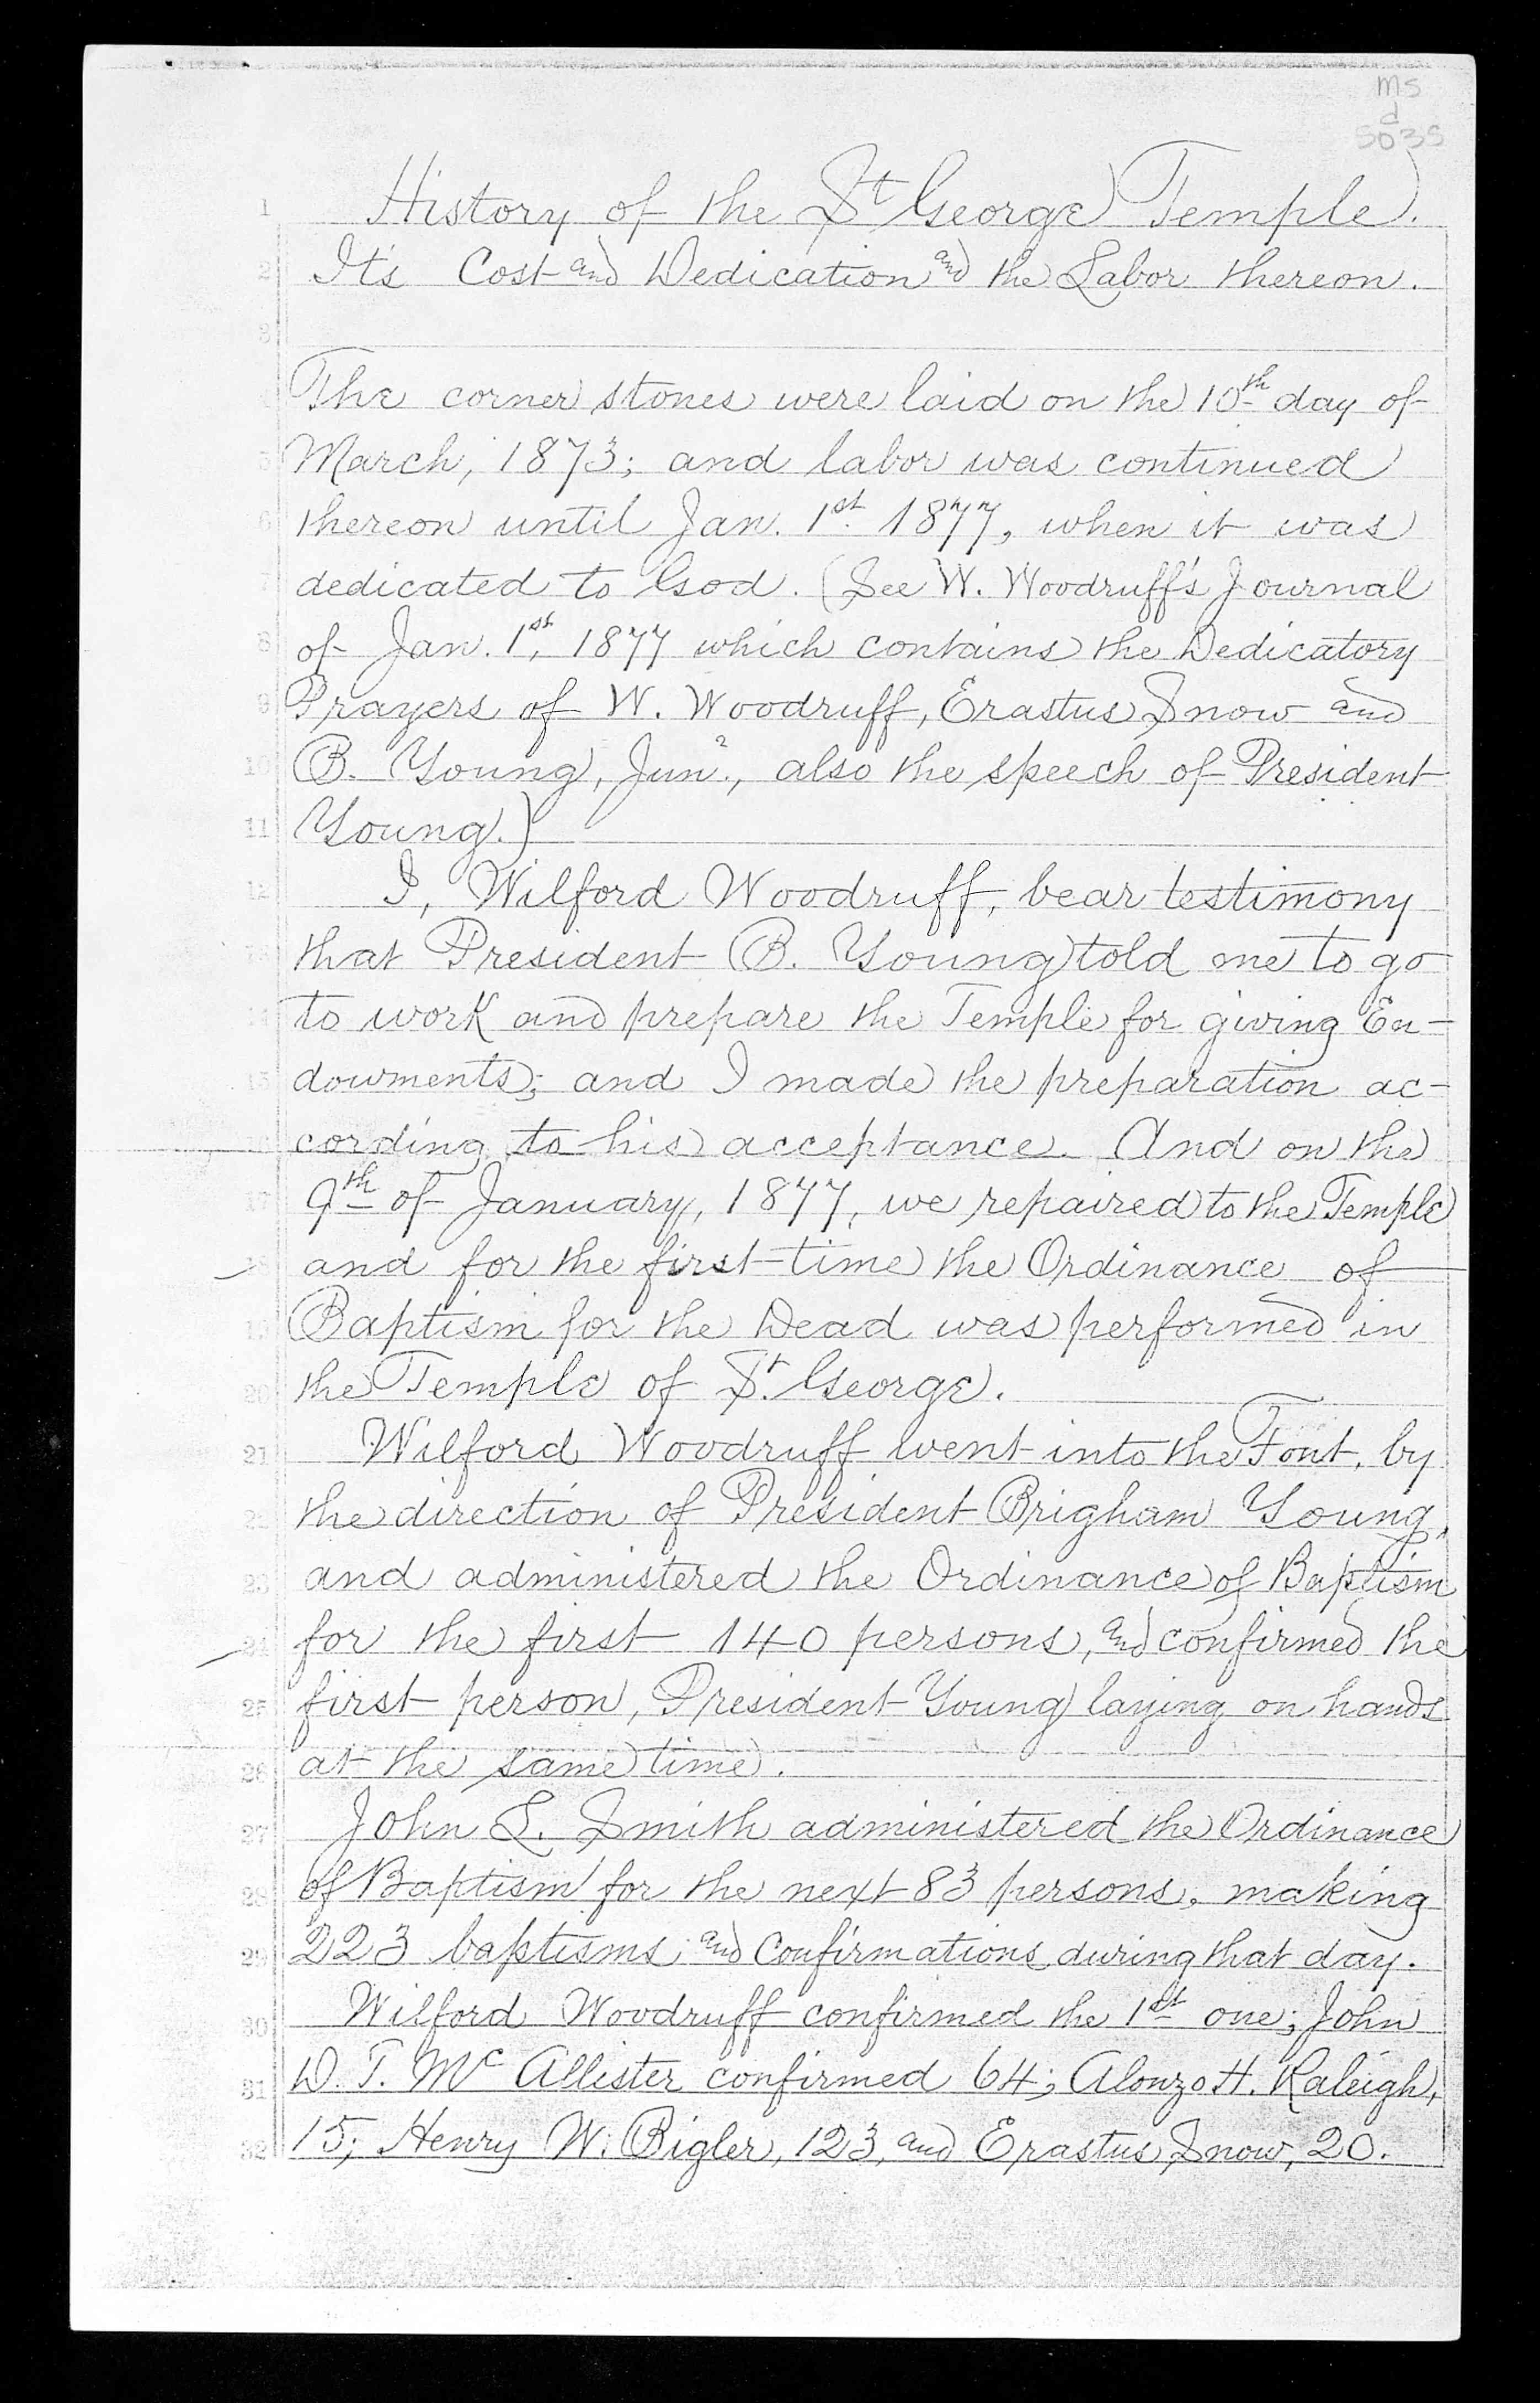 ms
d
5035
1 History of the St George Temple.
2 It's Cost and Dedication and the Labor thereon.
3
4 The corner stones were laid on the 10th day of
5 March, 1873; and labor was continued
6 thereon until Jan. 1st. 1877, when it was
7 dedicated to God. (See W. Woodruff's Journal
8 of Jan. 1st, 1877 which contains the Dedicatory
9 Prayers of W. Woodruff, Erastus Snow and
10 B. Young, Junr., also the speech of President
11 Young.)
12 I, Wilford Woodruff, bear testimony
13 that President B. Young told me to go
14 to work and prepare the Temple for giving En-
15 dowments; and I made the preparation ac-
16 cording to his acceptance. And on the
17 9th of January, 1877, we repaired to the Temple
18 and for the first time the Ordinance of
19 Baptism for the Dead was performed in
20 the Temple of St. George.
21 Wilford Woodruff went into the Font, by
22 the direction of President Brigham Young,
23 and administered the Ordinance of Baptism
24 for the first 140 persons, and confirmed the
25 first person, President Young laying on hands
26 at the same time.
27 John L. Smith administered the Ordinance
28 of Baptism for the next 83 persons, making
29 223 baptisms and Confirmations during that day.
30 Wilford Woodruff confirmed the 1st one; John
31 D. T. Mc Allister confirmed 64; Alonzo H. Raleigh,
32 15; Henry W. Bigler, 123, and Erastus Snow, 20.